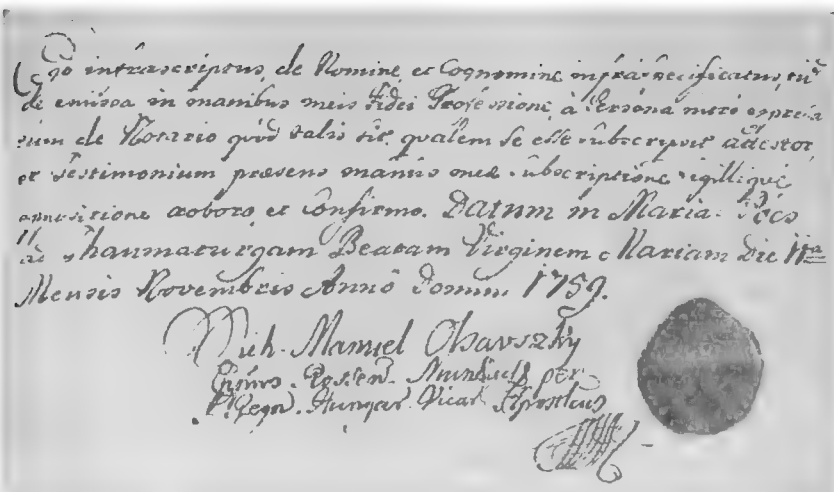 Ego infrascriptus, de Nomine, et Cognomine infra specificatus, tū
de emissa in manibus meis Fidei Professione, à Persona mero
de Notario quòd talis sit, qualem se esse subscripsit adtestor
et Testimonium præsens manûs meæ subscriptione sigillique
appositione roboro, et Confirmo. Datum in Maria-Pócs
ad Thaumaturgam Beatam Virginem Mariam Die 11ª
Mensis Novembris Annô Domini 1759.
Mich. Manuel Olsavszky
Eppus Rossen. Munkács per
Regn. Hungar. Vicar. Apostlcus